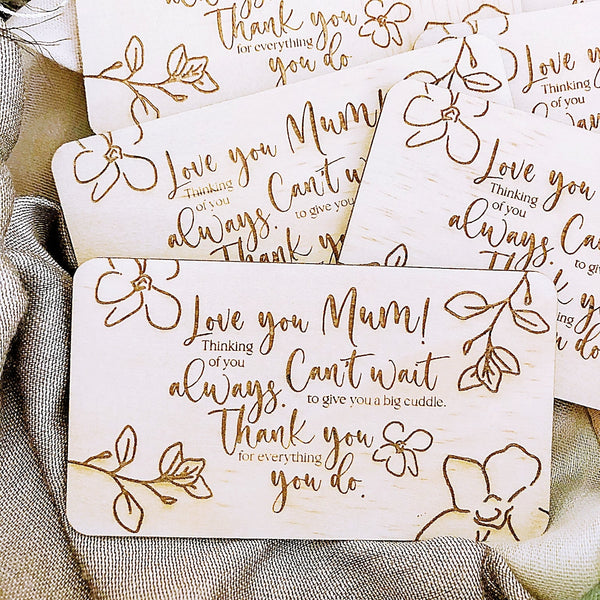 Thank you
for everything
you do.
Love you Mum!
Thinking
of you
always. Can't w
to give you
Thank y
Love you
Thinking
of you
always
Love you
Thinking
of you
always. Ca
to gi
you
Love you Mum!
Thinking
of you
always. Can't wait
to give you a big cuddle.
Thank you
for everything
you do.